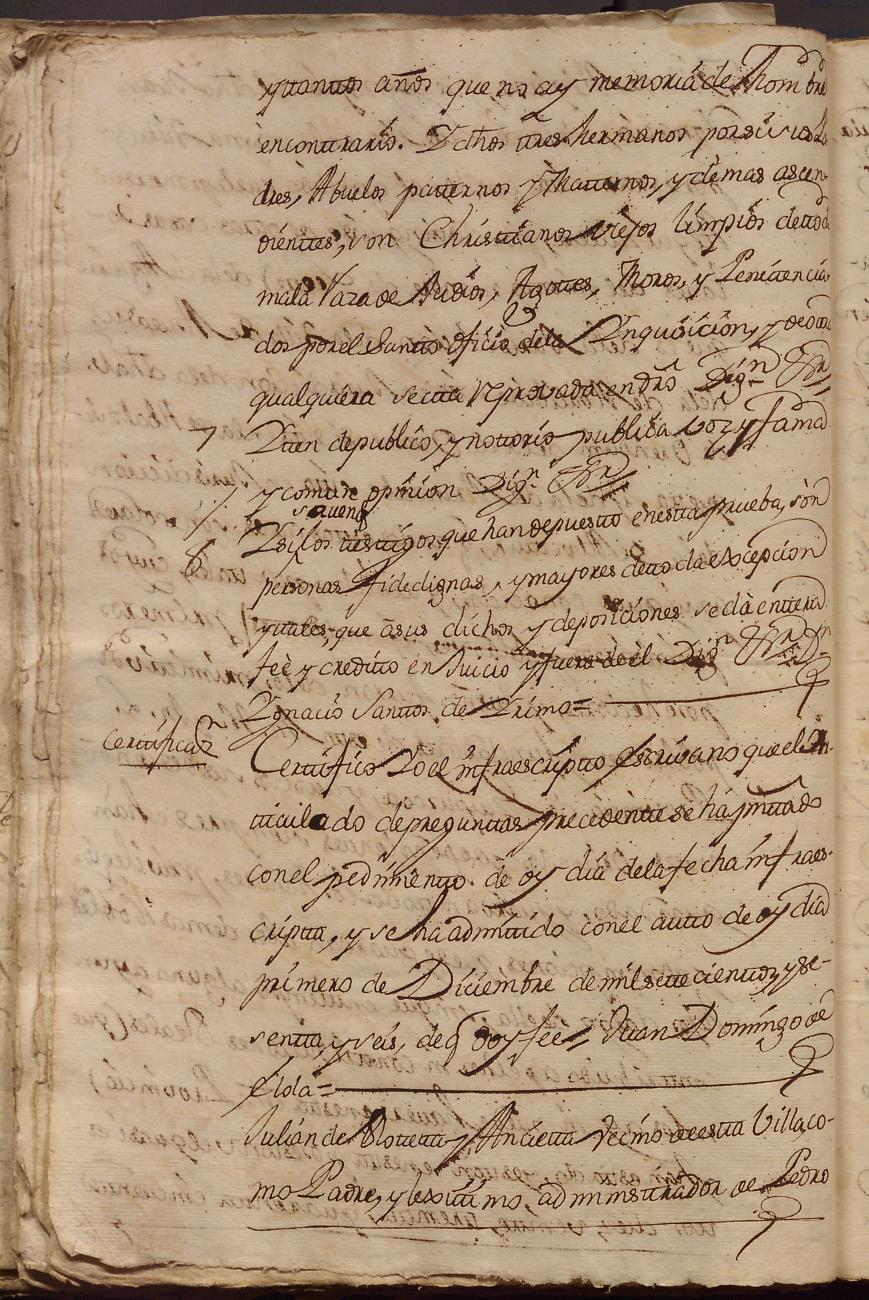 y tantos años que no ay memoria de hombre
en contrario. Y dhos tres hermanos por si sus Pa
dres, Abuelos patternos y Matternos, y demas ascen-
dientes, son Christianos viejos limpios de toda
mala Raza de Judios, Agotes, Moros, y Penitencia-
dos por el Santto oficio de la Inquisicion, y de otra
qualquiera secta reprovada en dro Dign
7 Itten de publico, y nottorio publica voz y fama
y comun opinion Dign
saven
8 Y si los testigos que han depuestto en estta prueba, son
personas fidedignas, y mayores de toda excepcion
y tales, que a sus dichos y deposiciones se da entera
feè y creditto en Juicio y fuera de èl Dign
Ygnacio Santtos de Irimo=
Certifica.n
Certtifico Yo el infraescriptto Escrivano que el Ar-
ticulado de preguntas precedente se há presenttado
con el pedimiento de oy dia de la fecha infraes-
cripta, y se ha admittido con el autto de oy dia
primero de Diciembre de mil settecienttos, y se-
sentta, y seis, de q doy feè= Juan Domingo de
Elola=
Julian de Olotetta y Ancietta Vecino de estta Villa, co-
mo Padre, y lexittimo, administtrador de Pedro